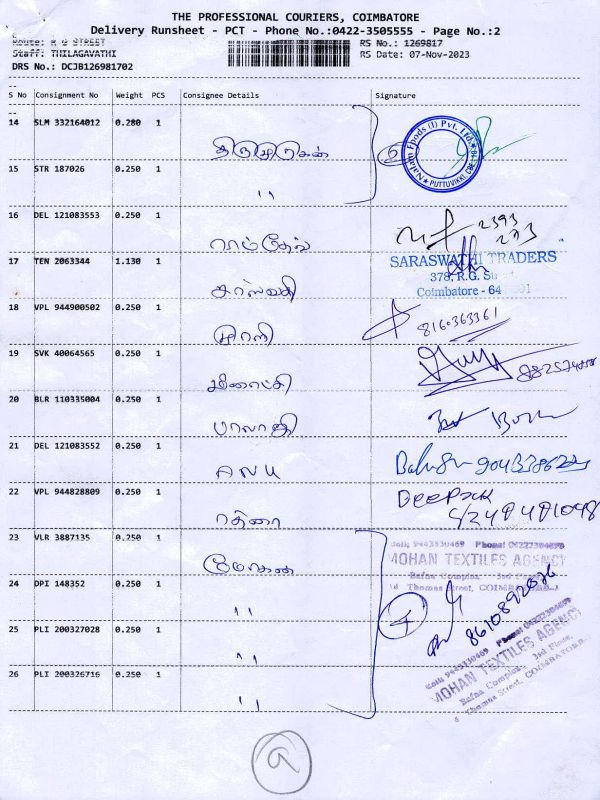 THE PROFESSIONAL COURIERS, COIMBATORE
Delivery Runsheet - PCT - Phone No.:0422-3505555 - Page No.:2
Route: R G STREET
Staff: THILAGAVATHI
DRS No.: DCJB126981702
RS No.: 1269817
RS Date: 07-Nov-2023
S No Consignment No Weight PCS Consignee Details Signature
14 SLM 332164012 0.280 1 திருமுருகன் 5
Nalam Foods (I) Pvt. Ltd. PUTTUVIKKI, CBE
15 STR 187026 0.250 1 "
16 DEL 121083553 0.250 1 ராம்தேவ் 2393
273
17 TEN 2063344 1.130 1 சரஸ்வதி
SARASWATHI TRADERS
378, R.G. St
Coimbatore - 641 001
18 VPL 944900502 0.250 1 முரளி 8160363361
19 SVK 40064565 0.250 1 மீனாட்சி
20 BLR 110335004 0.250 1 பாலாஜி
21 DEL 121083552 0.250 1
22 VPL 944828809 0.250 1 DEEPAK
23 VLR 3887135 0.250 1 மோகன்
Cell: 9443330469 Phone:
MOHAN TEXTILES AGENCY
Bafna Complex, 3rd Floor
Thomas Street, COIMBATORE-1
24 DPI 148352 0.250 1 " 4 8610892026
25 PLI 200327028 0.250 1 "
Cell: 9443330469 Phone:
MOHAN TEXTILES AGENCY
Bafna Complex, 3rd Floor,
Thomas Street, COIMBATORE
26 PLI 200326716 0.250 1 "
9